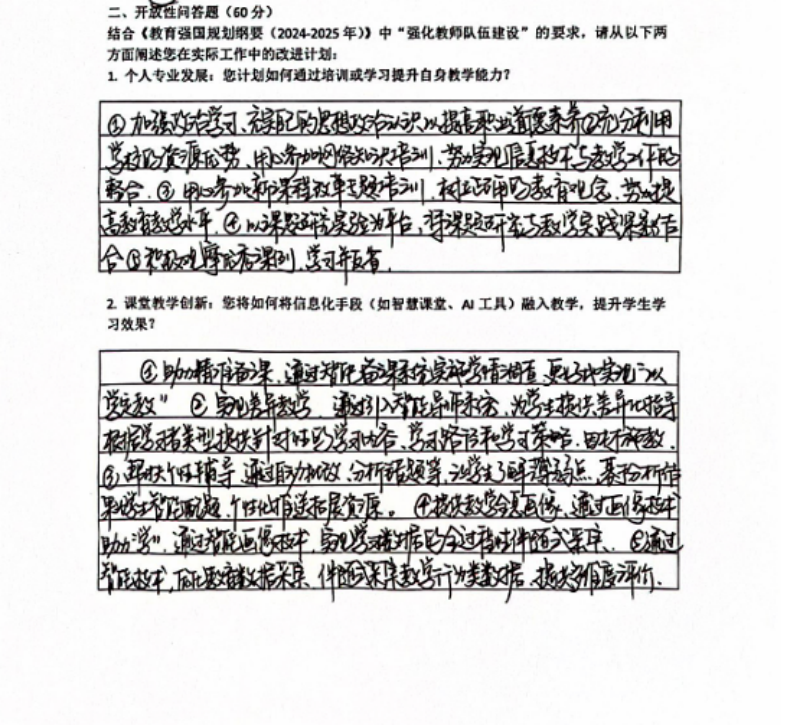 二、开放性问答题（60 分）
结合《教育强国规划纲要（2024-2025 年）》中“强化教师队伍建设”的要求，请从以下两
方面阐述您在实际工作中的改进计划：
1. 个人专业发展：您计划如何通过培训或学习提升自身教学能力？
① 加强政治学习、充实自己的思想政治认识以提高职业道德素养②充分利用
学校的资源优势，用心参加网络知识培训，努力实现信息技术与教学工作的
整合。③ 用心参加新课程改革专题培训，树立正确的教育观念、努力提
高教育教学水平。④ 以课题研究实验为平台，将课题研究与教学实践紧密结
合⑤积极观摩优秀课例，学习并反省。
2. 课堂教学创新：您将如何将信息化手段（如智慧课堂、AI 工具）融入教学，提升学生学
习效果？
① 助力精准备课，通过智能备课系统实施学情调查，更好地实现“以
学定教” ② 实现差异教学，通过引入智能导师系统，为学生提供差异化指导
根据学习者类型提供针对性的学习内容、学习路径和学习策略，因材施教。
③ 提供个性辅导，通过自动批改、分析错题等，让学生了解薄弱点，基于分析结
果学生智能配题，个性化推送拓展资源。 ④提供教学全息画像，通过画像技术
助力“学”，通过智能画像技术，实现学习者数据的全过程伴随式采集、 ⑤通过
智能技术，优化教育数据采集，伴随式采集教学行为类数据，提供多维度评价。